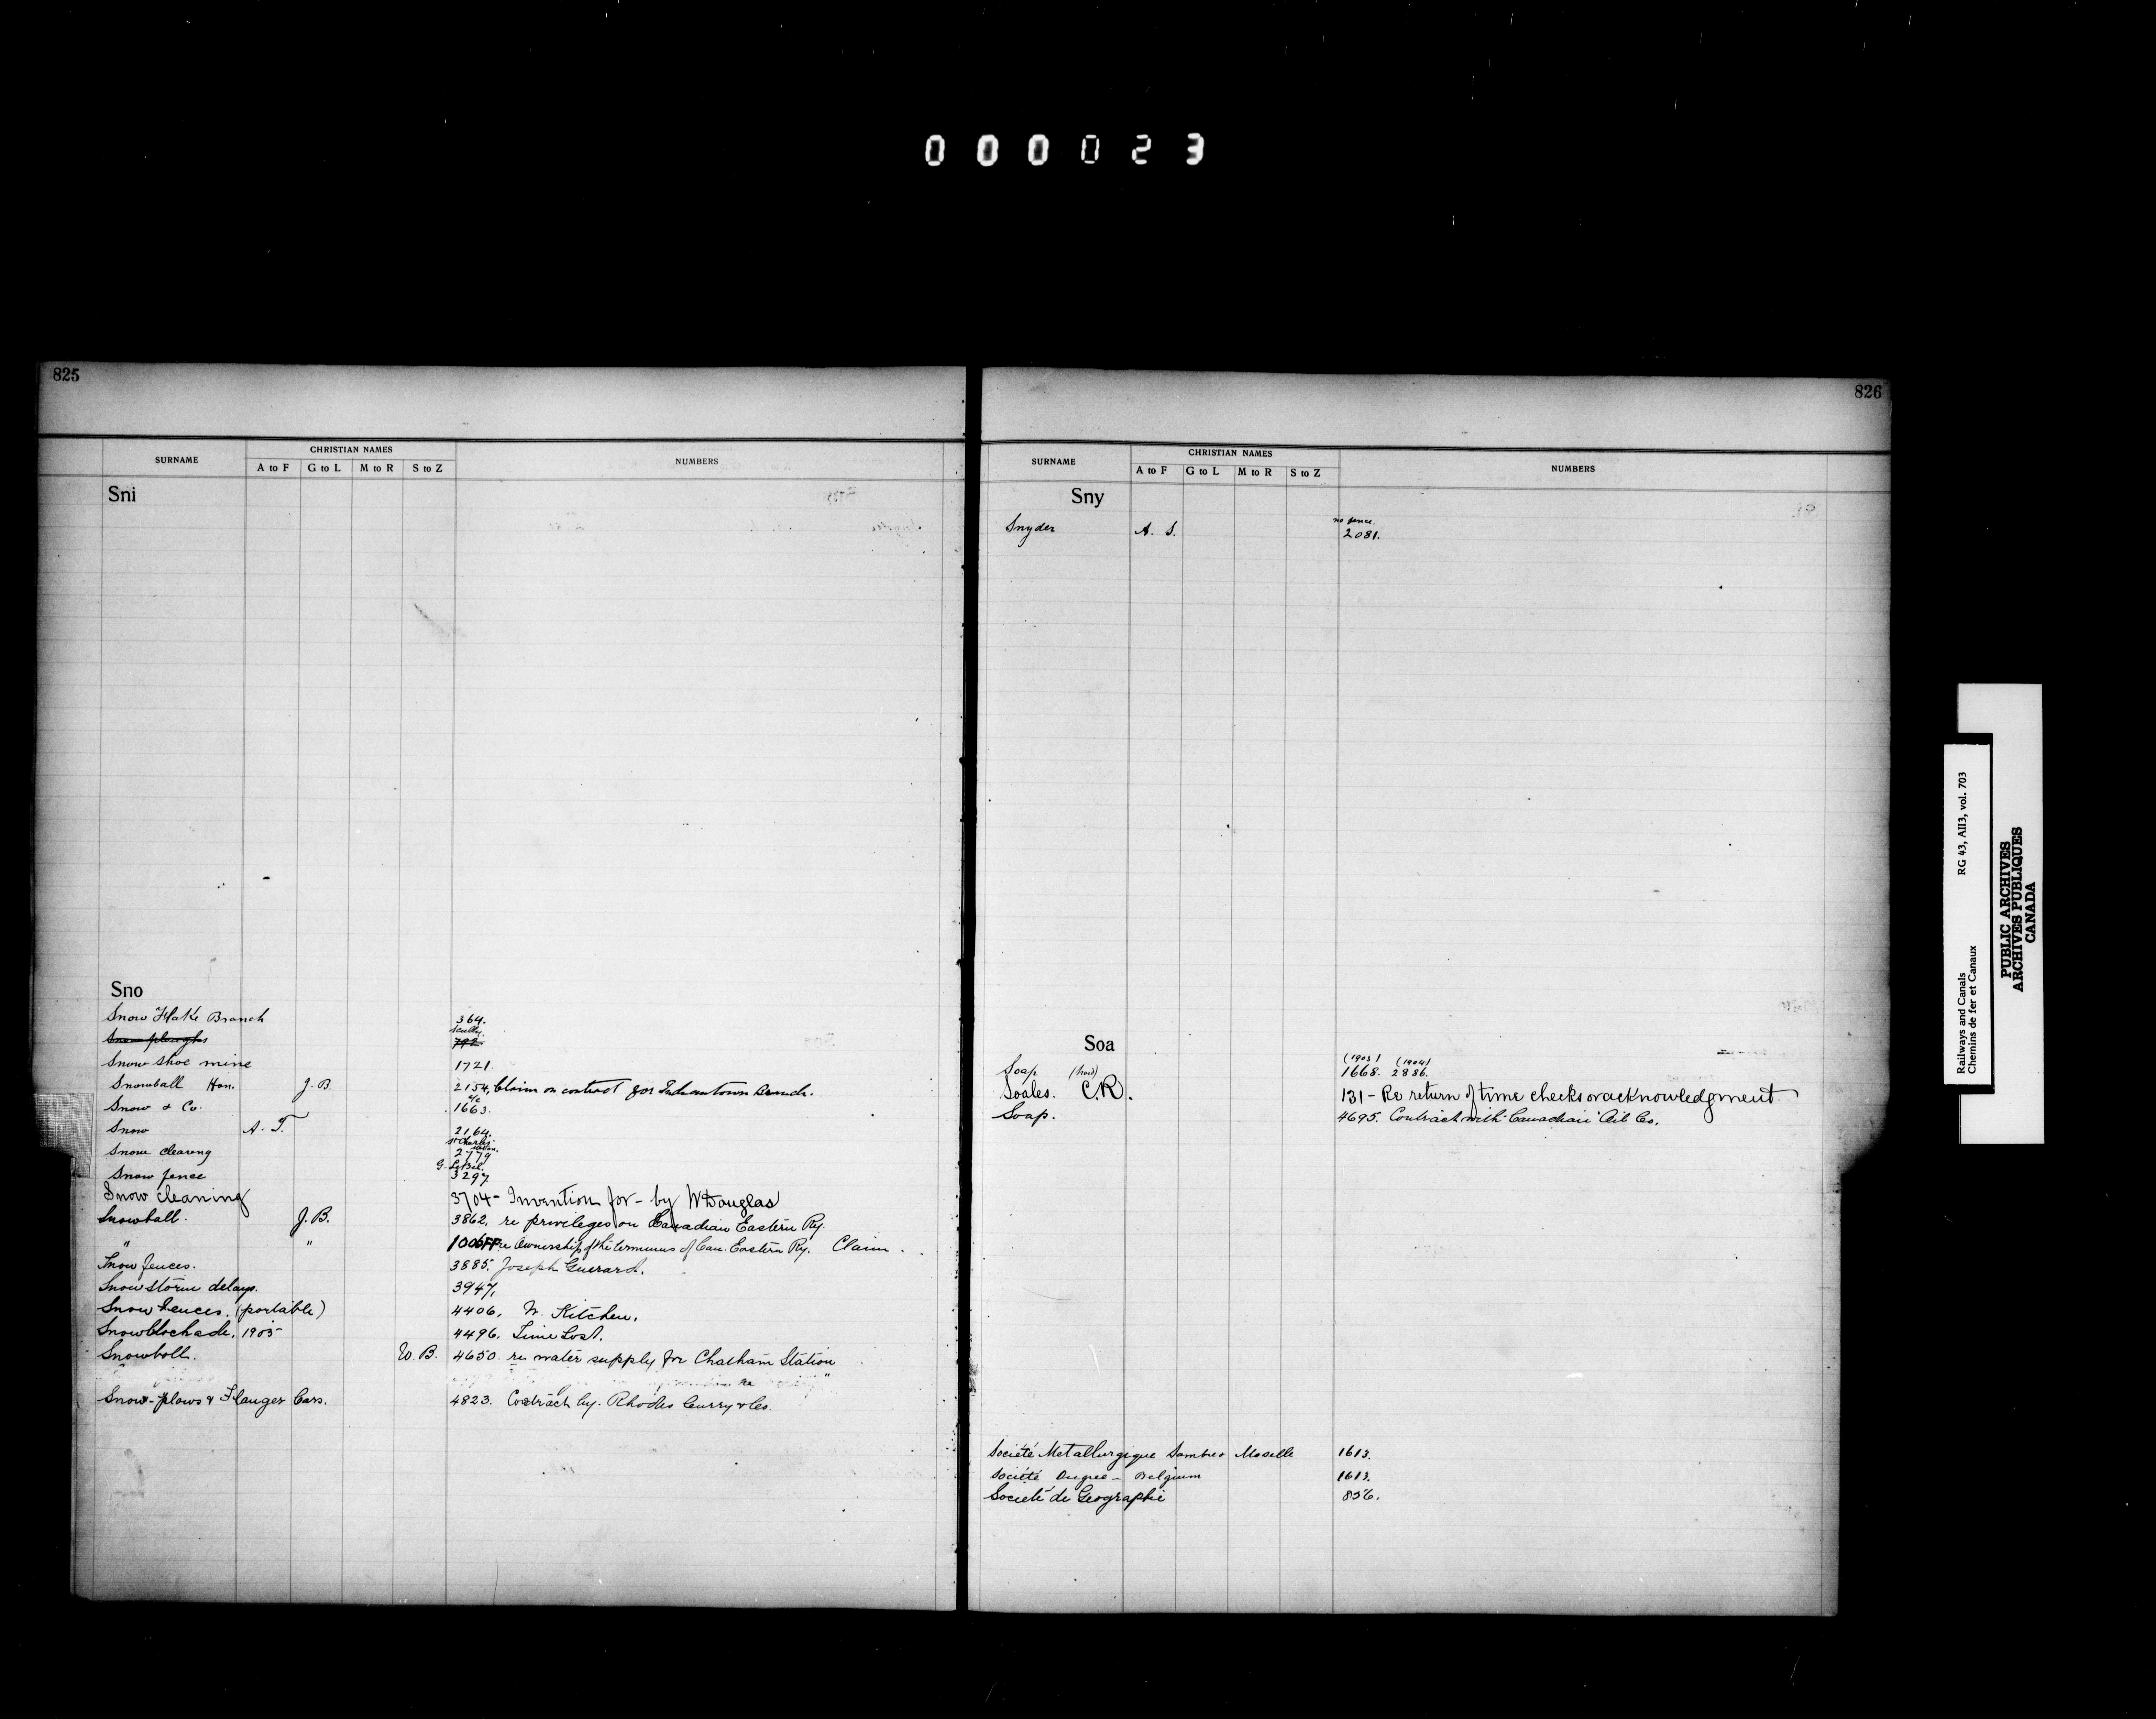 000023
825
SURNAME CHRISTIAN NAMES NUMBERS
A to F G to L M to R S to Z
Sni
Sno
Snow Flake Branch 364.
Snow ploughs 792
Snow shoe mine 1721.
Snowball Hon. J. B. 2154, Claim on contract for Indiantown Branch.
Snow & Co. 1663.
Snow A. T. 2164.
St Charles
Snow clearing 2779
G. LeBel.
Snow fence 3297
Snow cleaning 3704 - Invention for - by W Douglas
Snowball. J. B. 3862, re privileges on Canadian Eastern Ry.
" " 1006FF re Ownership of the terminus of Can. Eastern Ry. Claim.
Snow fences. 3885. Joseph Guerard.
Snow storm delays. 3947,
Snow Fences. (portable) 4406, W. Kitchen.
Snowblockade, 1905 4496. Time Lost.
Snowball. W. B. 4650. re water supply for Chatham Station
re "
Snow-plows & Flanger Cars. 4823. Contract by. Rhodes Curry & Co.
826
SURNAME CHRISTIAN NAMES NUMBERS
A to F G to L M to R S to Z
Sny
no fence.
Snyder A. S. 2081.
Soa
(1903) (1904)
Soap (hard) 1668. 2886.
Soales. C.R. 131 - Re return of time checks or acknowledgment
Soap. 4695. Contract with Canadian Oil Co.
Société Metallurgique Sambre & Moselle 1613.
Société Ougree - Belgium 1613.
Société de Geographie 856.
Railways and Canals RG 43, AII3, vol. 703
Chemins de fer et Canaux
PUBLIC ARCHIVES
ARCHIVES PUBLIQUES
CANADA